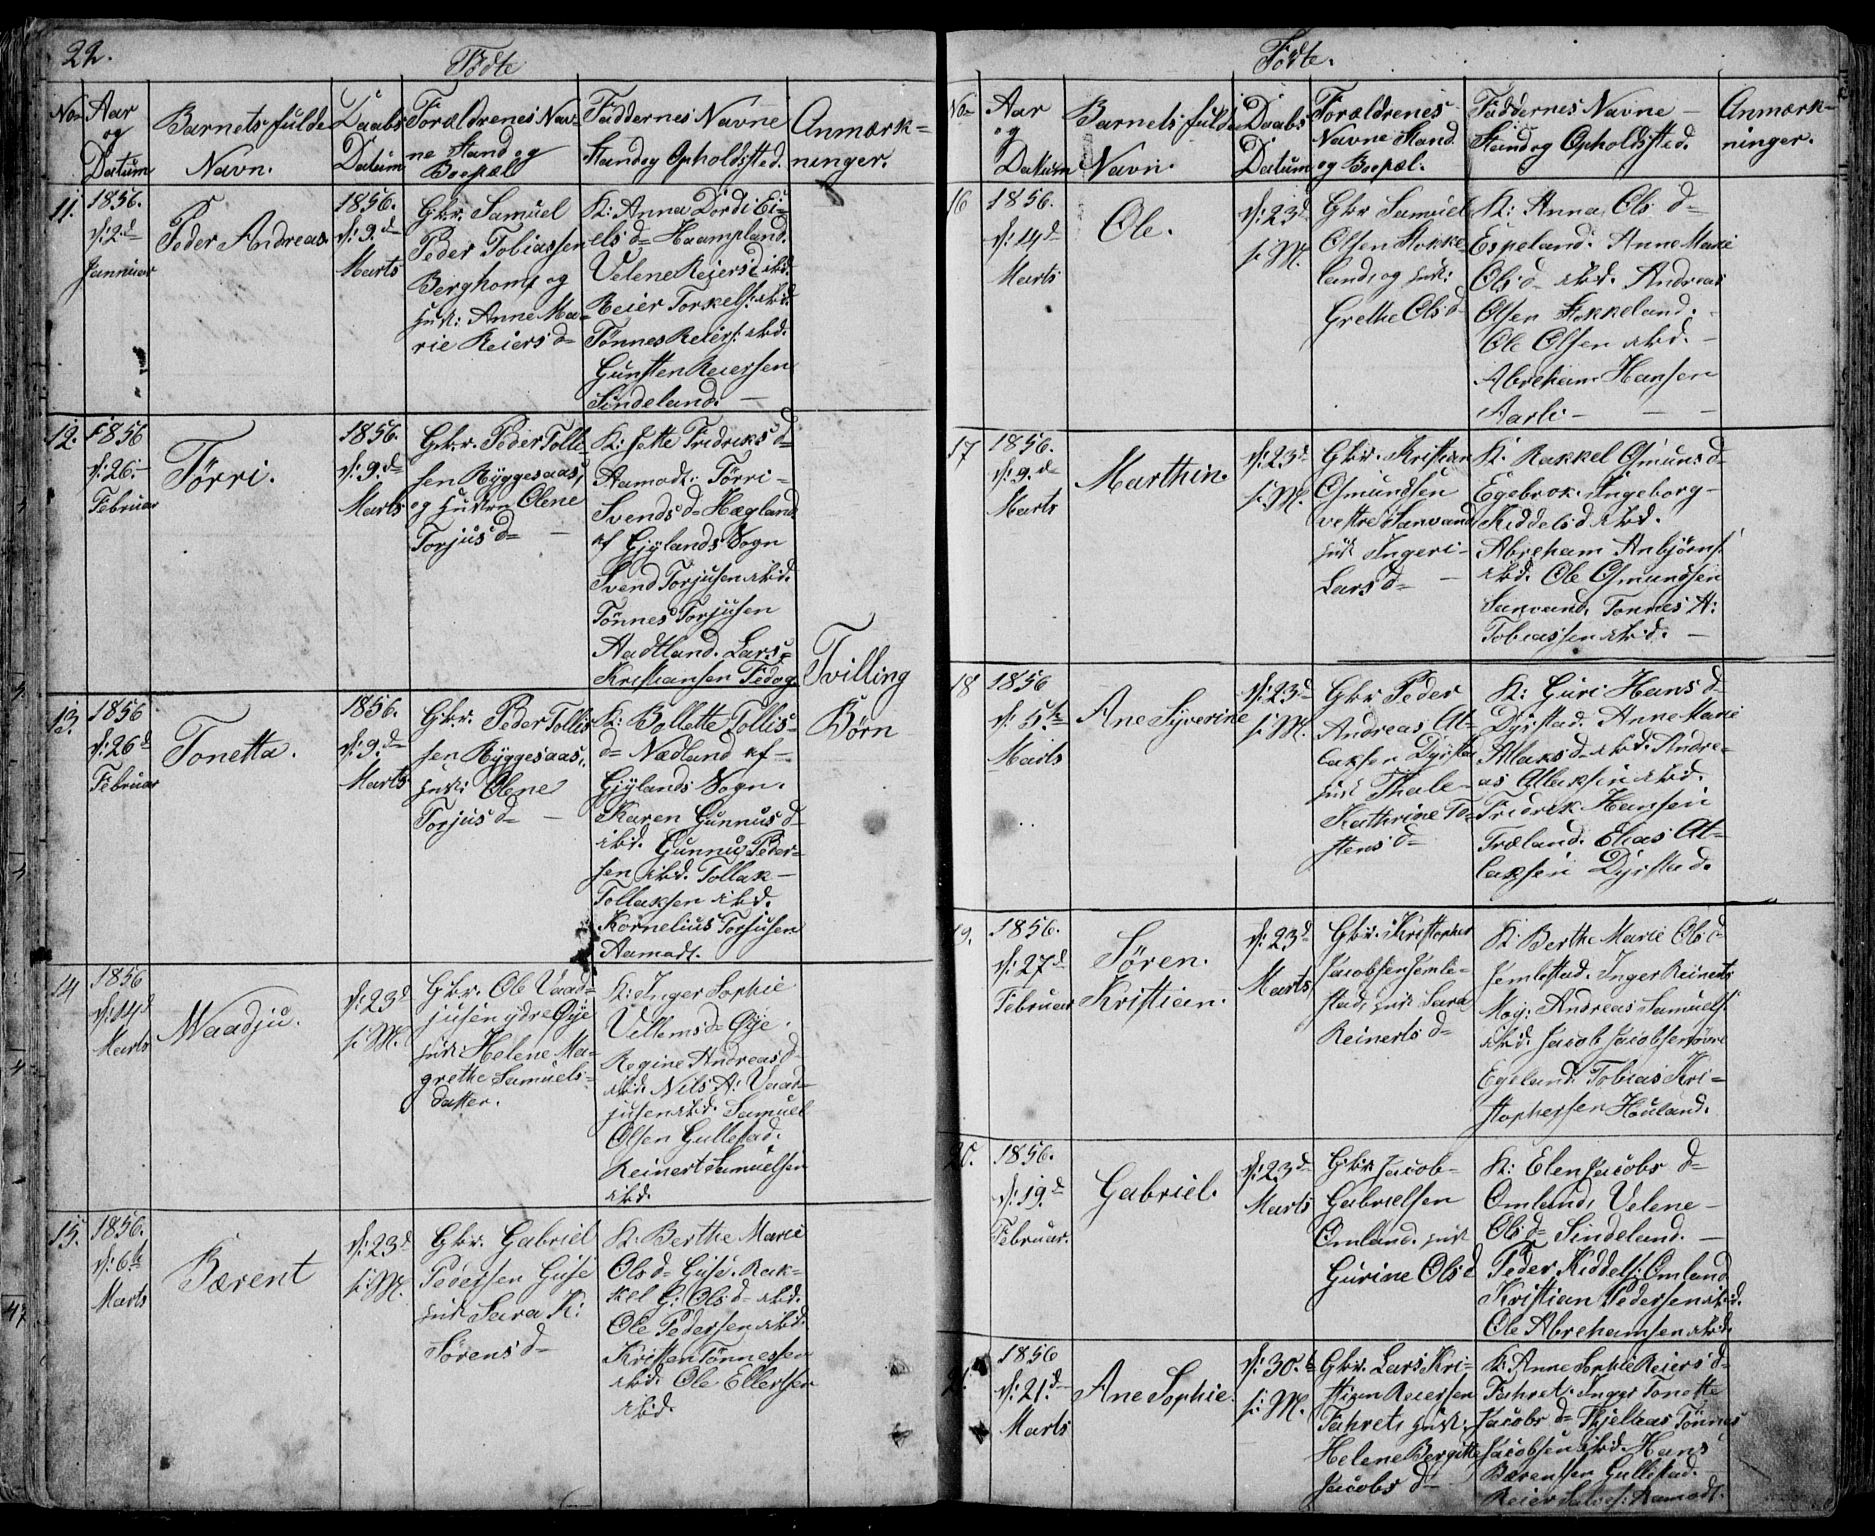 22.
Fødte
No
Aar
og
Datum
Barnets fulde
Navn.
Daabs
Datum
Forældrenes Nav-
ne Stand og
Boepæl
Faddernes Navne
Stand og Opholdssted.
Anmærk-
ninger.
11.
1856.
d: 2d
Januar
Peder Andreas.
1856.
d: 9.d
Marts
Gbr. Samuel
Peder Tobiassen
Berghom og
hust: Anne Ma-
rie Reiersd
K: Anna Dordi Ei-
elsd Haampland.
Velene Reiersd ibid.
Reier Torkels: ibid.
Tønnes Reiers: ibid.
Gunsten Reiersen
Sindeland. –
12.
1856
d: 26
Februar
Tørri.
1856.
d: 9.d
Marts
Gbr. Peder Tolle-
sen Ryggesaas,
og hustru Olene
Torjusd –
K: Jette Fridriksd
Aamodt. Tørri
Svendsd Hægland
af Gjylands Sogn
Svend Torjusen ibid.
Tønnes Torjusen
Aadtland. Lars
Kristiansen Fedog
Tvilling
Børn
13.
1856
d: 26d
Februar
Tonetta.
1856.
d: 9.d
Marts
Gbr. Peder Tollis
sen Ryggesaas,
hust: Olene
Torjusd –
K: Bollette Tollis-
d Nædland af
Gjylands Sogn.
Karen Gunnusd
ibid. Gunnus Peder-
sen ibid. Tollak
Tollaksen ibid.
Kornelius Torjusen
Aamodt.
14
1856
d: 14d
Marts
Waadju.
d: 23d
s: M.
Gbr. Ole Vaad-
jusen ydre Øye
hust: Helene Ma-
grethe Samuels-
datter.
K: Inger Sophie
Villemsd Øye.
Regine Andreasd
ibid. Nils A: Vaad-
jusen ibid. Samuel
Olsen Gullestad.
Reinert Samuelsen
ibid.
15.
1856.
d: 6te
Marts
Bærent
d: 23d
s: M.
Gbr. Gabriel
Pedersen Guse
hust Sara K:
Sørensd
K: Berthe Marie
Olsd Guse. Rak-
kel G: Olsd ibid.
Ole Pedersen ibid.
Kristen Tønnessen
ibid. Ole Ellertsen
ibid.
Fødte.
No
Aar
og
Datum
Barnets fulde
Navn.
Daabs
Datum
Forældrenes
Navne Stand
og Boepæl.
Faddernes Navne
Stand og Opholdssted.
Anmærk-
ninger.
16
1856.
d: 14d
Marts
Ole.
d: 23d
s: M.
Gbr Samuel
Olsen Stokke-
land, og hust:
Grethe Olsd
K: Anna Olsd
Espeland. Anne Marie
Olsd ibid. Andreas
Olsen Stokkeland.
Ole Olsen ibid. –
Abreham Hansen
Aarli – – –
17
1856.
d: 9.d
Marts
Marthin.
d: 23d
s: M.
Gbr. Kristian
Osmundsen
vestre Sanvand
hust Ingeri
Larsd –
K: Rakkel Osmunsd
Egebrok. Ingeborg
Kiddelsd ibid.
Abreham Anbjørns:
ibid. Ole Osmundsen
Sanvand. Tønnes A:
Tobiassen ibid. –
18
1856
d: 5te
Marts
Ane Syverine
d: 23d
s: M.
Gbr Peder
Andreas At-
laksen Dyrsta
hust Thale
Kathrine To-
stensd
K: Guri Hansd
Dyrstad. Anne Marie
Atlaksd ibid. Andre-
as Atlaksen ibid.
Fridrik Hansen
Træland. Elias At-
laksen Dyrstad.
19.
1856.
d: 27d
Februar
Søren
Kristian.
d: 23d
Marts
Gbr. Kristopher
Jacobsen Jemle-
stad, hust Sara
Reinertsd
K: Berthe Marie Olsd
Jemlestad. Inger Reinerts
Moj. Andreas Samuels:
ibid. Jacob Jacobsen
Egeland. Tobias Kri-
stophersen Houland.
20.
1856.
d: 19.d
Februar.
Gabriel.
d: 23d
Marts
Gbr Jacob
Gabrielsen
Omland. hust
Gurine Olsd
K: Elen Jacobsd
Omland, Velene
Olsd Sindeland. –
Peder Kiddels: Omland
Kristian Pedersen ibid.
Ole Abrehamsen ibid.
21.
1856
d: 21.d
Marts
Ane Sophie.
d: 30.te
s: M.
Gbr. Lars Kri-
stian Reiersen
Fahret, hust:
Helene Bergitte
Jacobsd
K: Anne Sophie Reiersd
Fahret. Inger Tonette
Jacobsd Fhjelaas Tønnes
Jacobsen ibid. Hans
Bærentsen Gullestad.
Reier Salves: Aamodt.